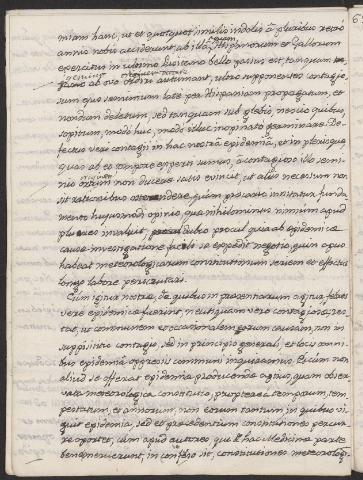 miam hanc, ut et quotquot similis indolis à pluribus retrò
annis nobis acciderunt ab illa, quam Hispanorum et Gallorum
exercitus in ultimo Lusitano bello passus est, tanquam
genuina ab ove originem totalem autumant, ubro supponentes contagio,
suum quo seminium late per Hispaniam propagatum, et
nondum deletum, sed tanquam sub gleba nescio quibus
sopitum, modo huc, modo illuc inopinato germinare. De-
fectus veri contagii in hac nostra epidemia, et in plerisque
quas ab eo tempore experti sumus, à contagioso illo semi-
nio originem non ducere satis evincit, ut aliis necessum non
sit rationibus ostendere, quàm precario innitatur funda-
mento hujusmodi opinio, qua nihilominus nimium apud
plures invaluit, procul dubio quia ab epidemiæ
causæ investigatione facile se expedit negotio, quin opus
habeat meteorologicarum constitutionum seriem et effectus
longo labore perscrutari.
Cum igitur nostra, de quibus in præsentiarum agitur, febres
vere epidemicæ fuerint, neutiquam vero contagiosæ, res-
tat, ut communem et occasionalem earum causam, non in
supposititio contagio, sed in principio generali, et locis omni-
bus epidemia oppressis communi inquiramus. Et cum non
aliud se offerat epidemiæ producendæ aptius, quam obser-
vata meteorologica constitutio, propterea temporum, tem-
pestatum, et annorum, non eorum tantum in quibus vi-
guit epidemia, sed et præcedentium constitutiones percur-
re oportet, cum apud autores qui de hac Medicinæ parte
benemeruerunt, in confesso sit, constitutiones meteorologi-